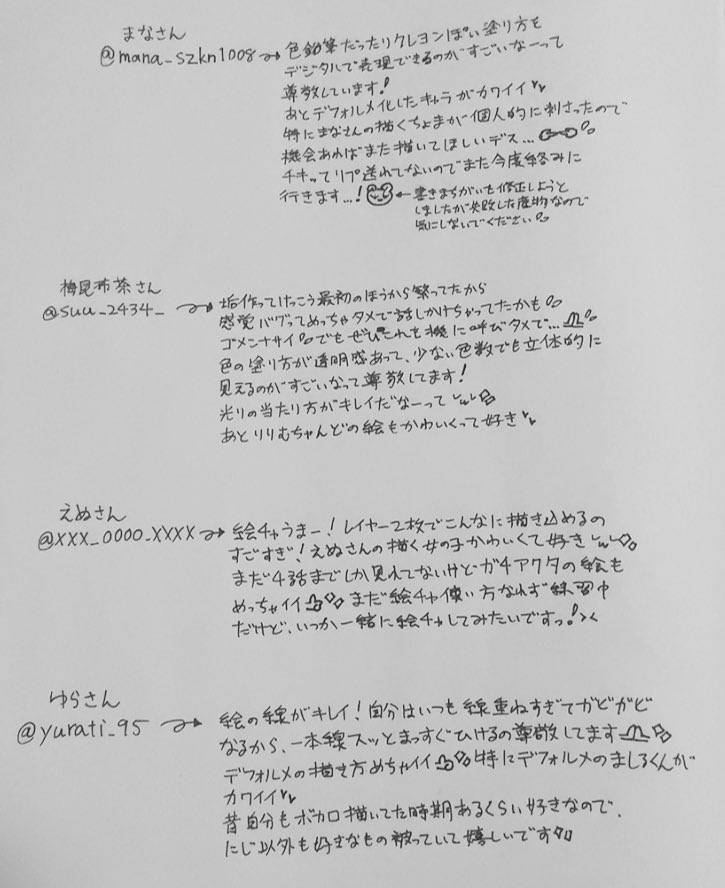 まなさん
@mana_szkn1008 → 色鉛筆だったりクレヨンぽい塗り方を
デジタルで表現できるのがすごいなーって
尊敬しています!
あとデフォルメ化したキャラがカワイイ
特にまなさんの描くちょまが個人的に刺さったので
機会あればまた描いてほしいデス...
チキってリプ送れてないのでまた今度絡みに
行きます...! ← 書きまちがいを修正しようと
しましたが失敗した産物なので
気にしないでください
梅昆布茶さん
@suu_2434_ → 垢作ってけっこう最初のほうから繋ってたから
感覚バグってめっちゃタメで話しかけちゃってたかも
ゴメンナサイ でもぜひこれを機に呼びタメで...
色の塗り方が透明感あって、少ない色数でも立体的に
見えるのがすごいなって尊敬してます!
光りの当たり方がキレイだなーって
あとりりむちゃんどの絵もかわいくって好き
えぬさん
@XXX_0000_XXXX → 絵チャうまー!レイヤー2枚でこんなに描き込めるの
すごすぎ!えぬさんの描く女の子かわいくて好き
まだ4話までしか見れてないけどガチアクタの絵も
めっちゃイイ まだ絵チャ使い方なれず練習中
だけど、いつか一緒に絵チャしてみたいですっ!><
ゆらさん
@yurati_95 → 絵の線がキレイ!自分はいつも線重ねすぎてガどガど
なるから、一本線スッとまっすぐひけるの尊敬してます
デフォルメの描き方めちゃイイ 特にデフォルメのましろくんが
カワイイ
昔自分もボカロ描いてた時期あるくらい好きなので、
にじ以外も好きなもの被っていて嬉しいです